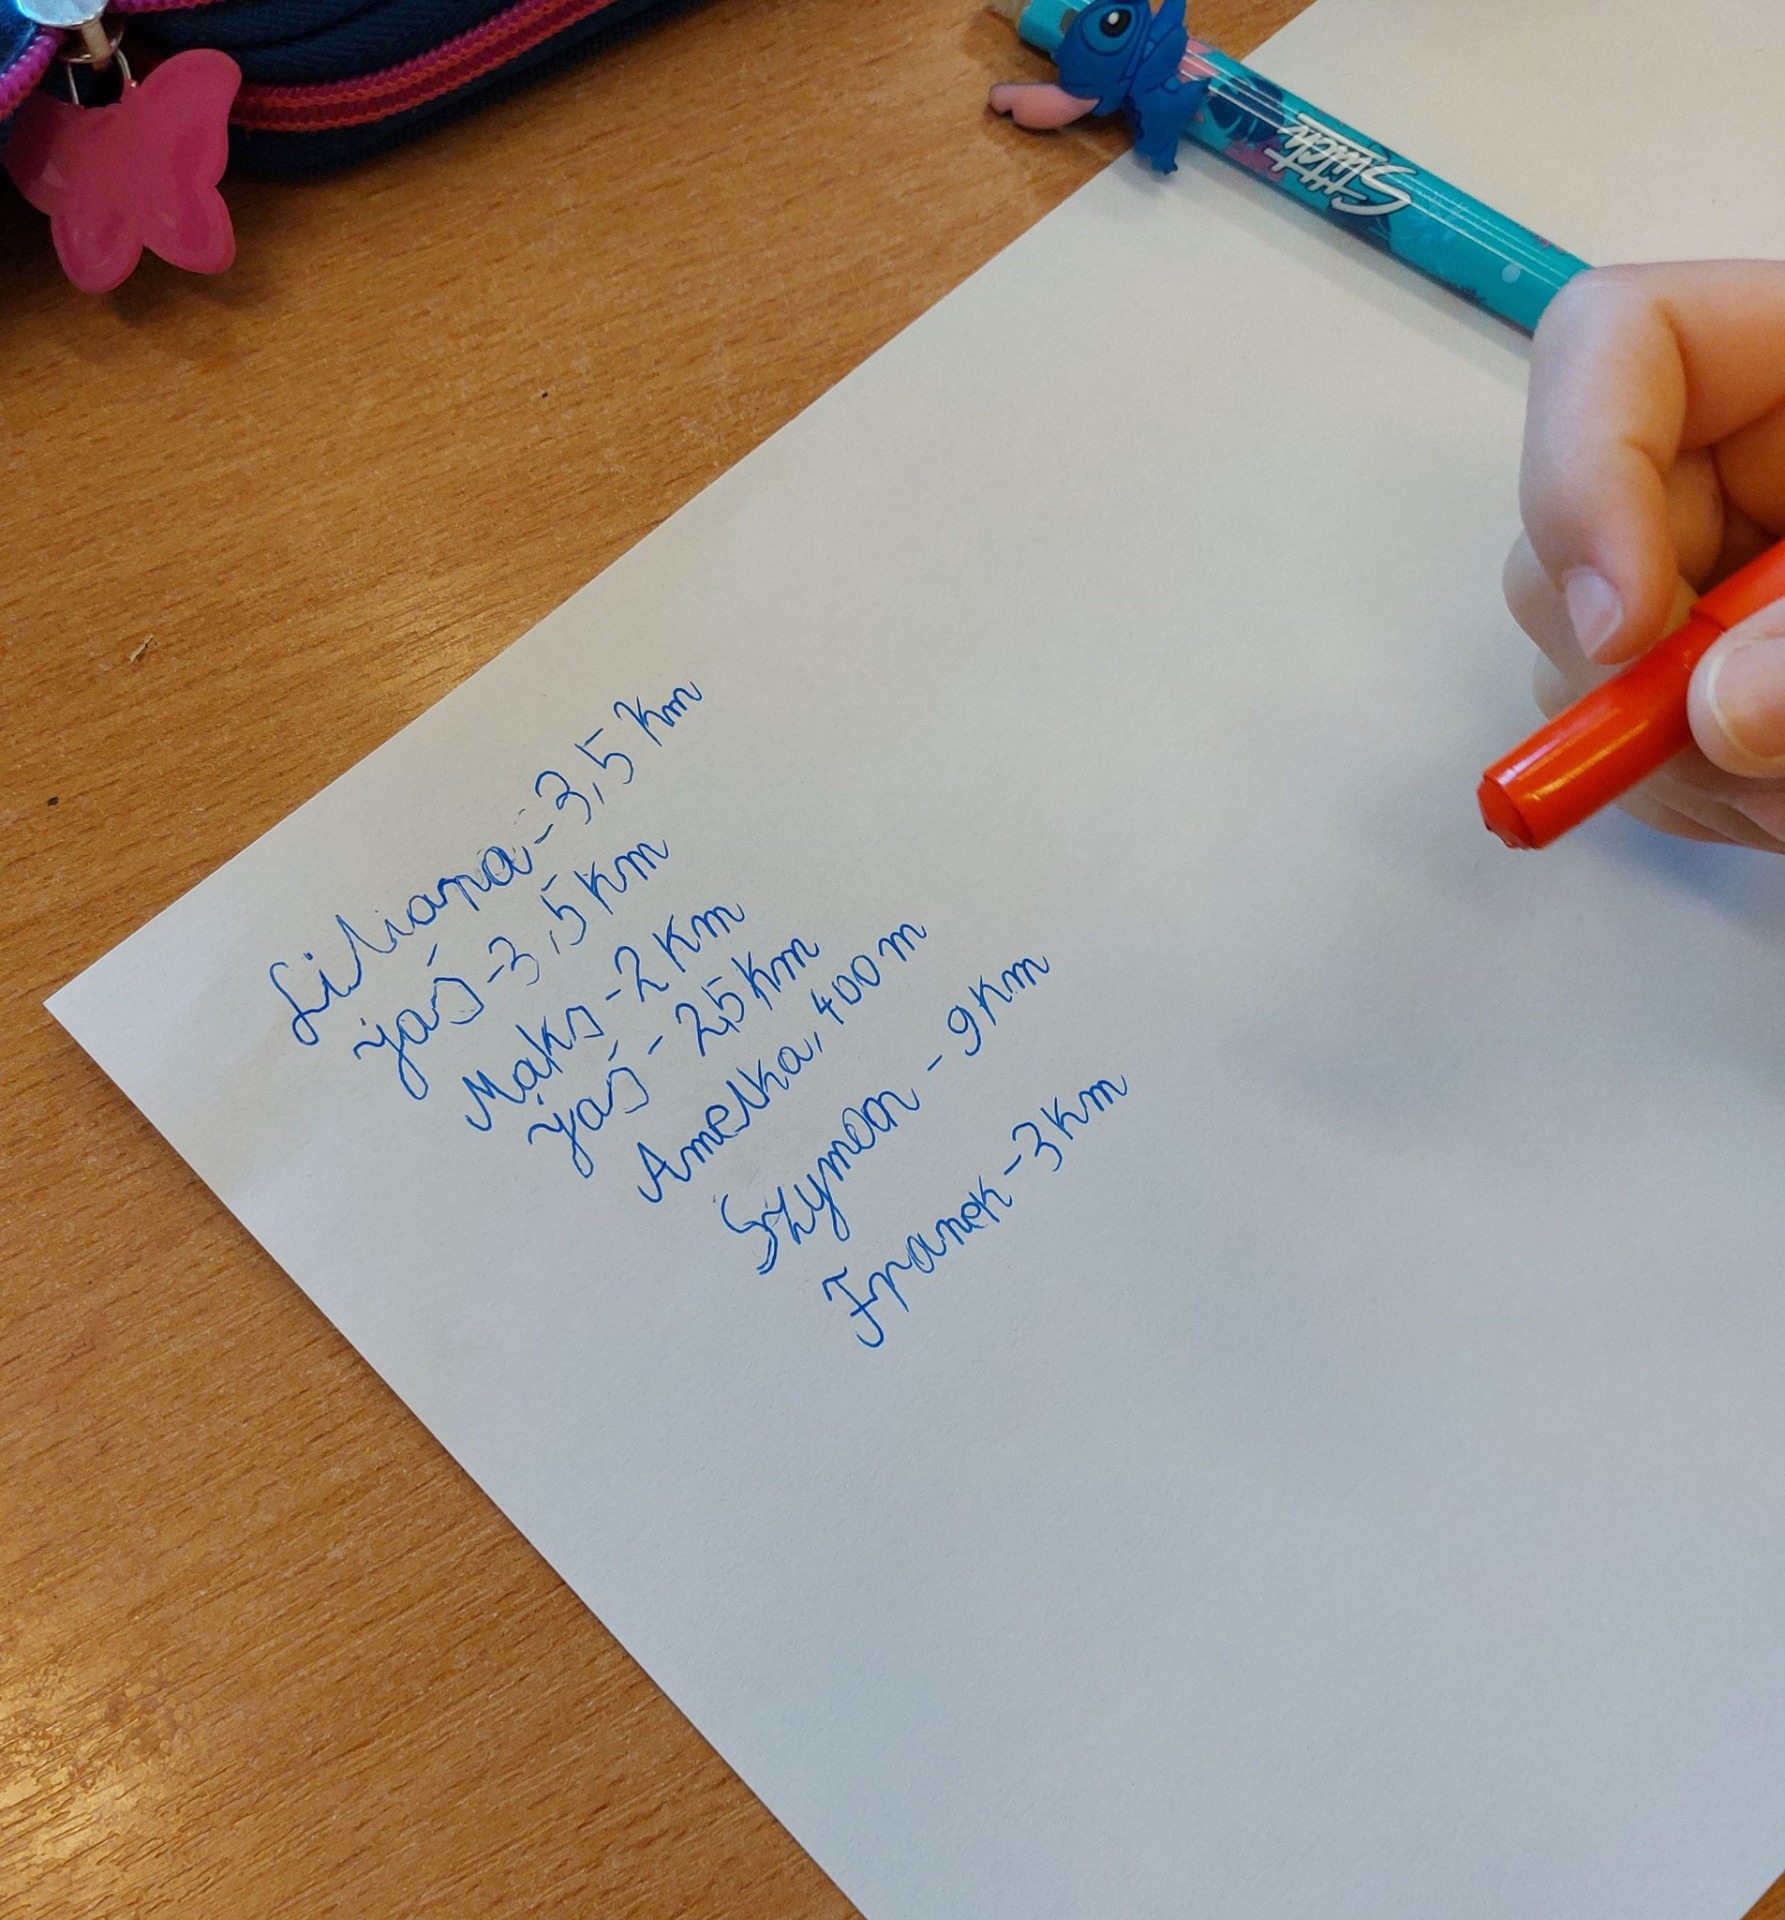 Stitch
Stitch
Liliana - 3,5 Km
Jaś - 3,5 Km
Maks - 2 Km
Jaś - 2,5 Km
Amelka, 400 m
Szymon - 9 Km
Franek - 3 Km